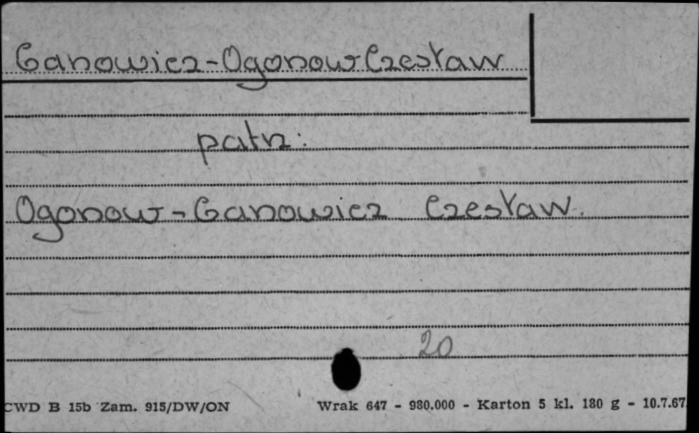 Ganowicz-Ogonow Czesław
patrz:
Ogonow-Ganowicz Czesław.
20
CWD B 15b Zam. 915/DW/ON Wrak 647 - 980.000 - Karton 5 kl. 180 g - 10.7.67